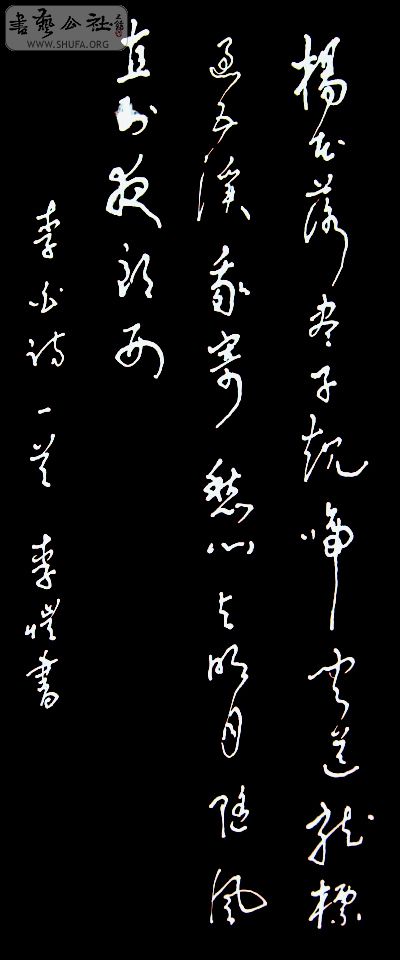 楊花落盡子規啼聞道龍標
過五溪我寄愁心與明月隨風
直到夜郎西
李白詩一首 李愷書
書藝公社
WWW.SHUFA.ORG